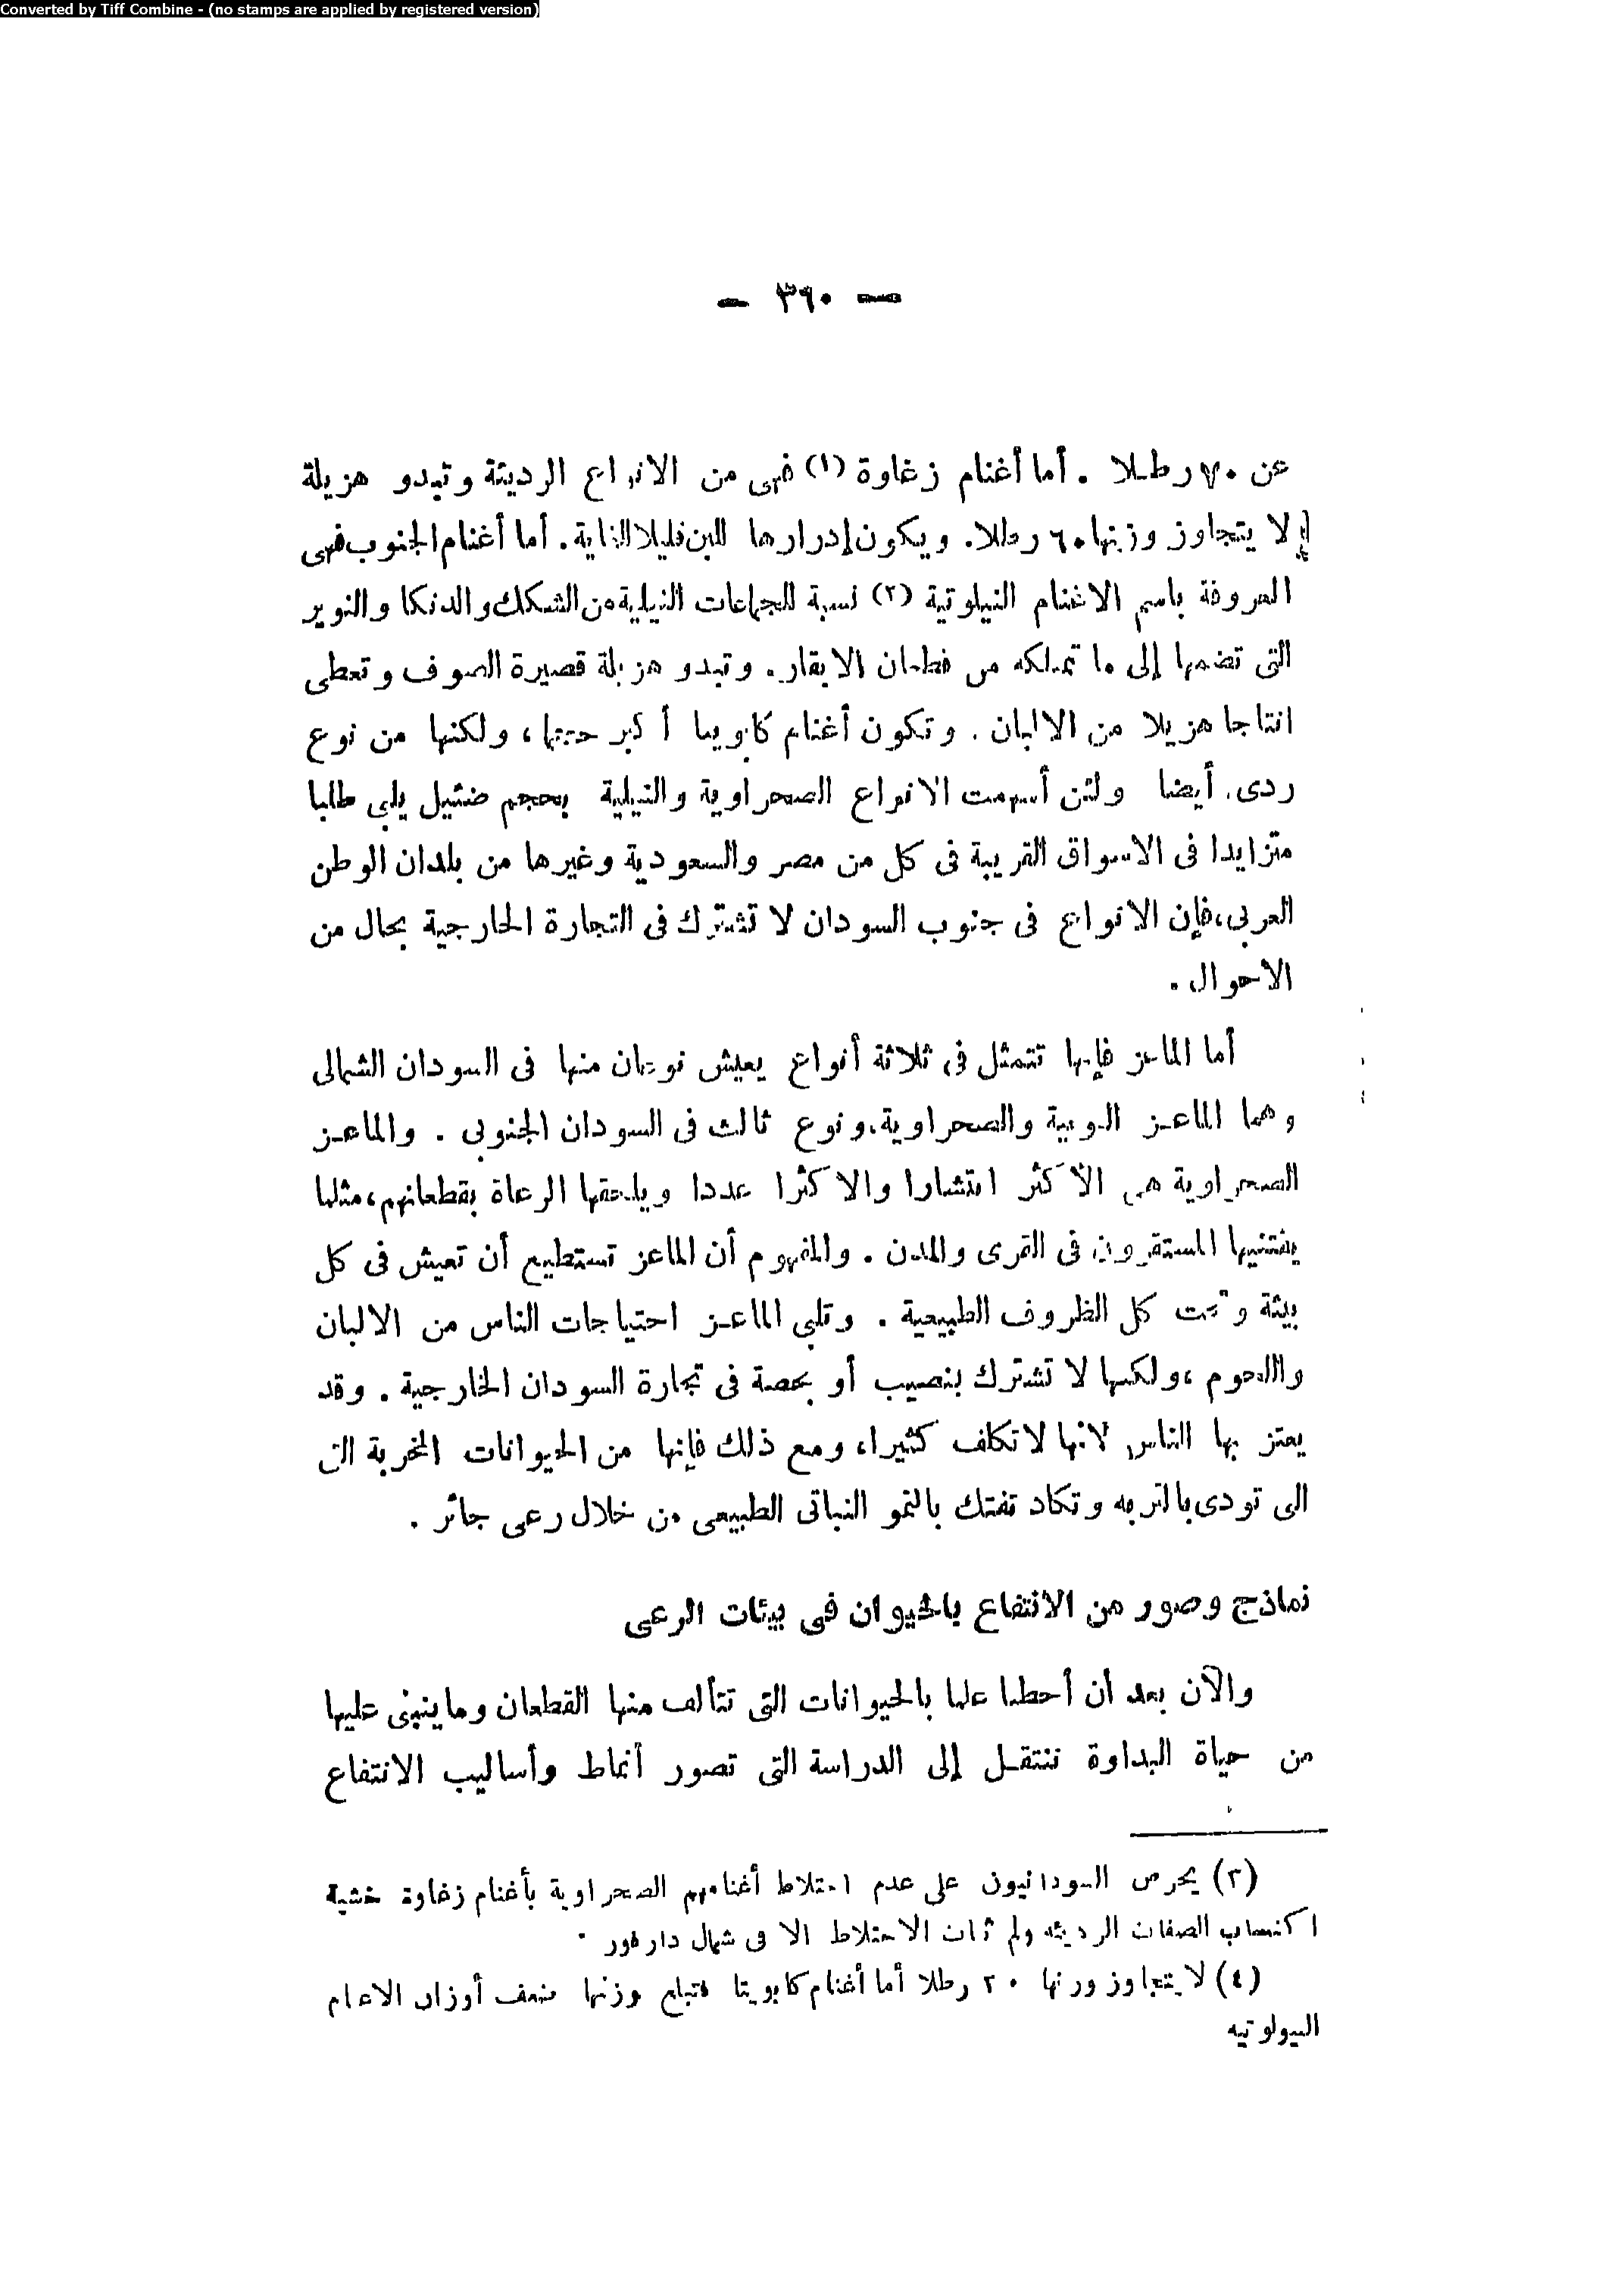 Converted by Tiff Combine - (no stamps are applied by registered version)
— ٣٦٠ —
عن ٧٠ رطلا . أما أغنام زغاوة (١) فهى من الانواع الرديئة وتبدو هزيلة
لا يتجاوز وزنها ٦٠ رطلا. ويكون إدرارها للبن قليلا للغاية. أما أغنام الجنوب فهى
المعروفة باسم الاغنام النيلوتية (٢) نسبة للجماعات النيلية من الشكك والدنكا والنوير
التى تضمها إلى ما تمتلكه من قطعان الابقار. وتبدو هزيلة قصيرة الصوف وتعطى
انتاجا هزيلا من الالبان . وتكون أغنام كابويتا أكبر حجما، ولكنها من نوع
ردى. أيضا ولئن أسهمت الانواع الصحراوية والنيلية بحجم ضئيل يلبى طلبا
متزايدا فى الاسواق القريبة فى كل من مصر والسعودية وغيرها من بلدان الوطن
العربى، فإن الانواع فى جنوب السودان لا تشترك فى التجارة الخارجية بحال من
الاحوال .
أما الماعز فإنها تتمثل فى ثلاثة أنواع يعيش نوعان منها فى السودان الشمالى
وهما الماعـز النوبية والصحراوية، ونوع ثالث فى السودان الجنوبى . والماعـز
الصحراوية هى الأكثر انتشارا والاكثرا عددا ويلحقها الرعاة بقطعانهم، مثلما
يقتنيها المستقرون فى القرى والمدن . والمفهوم أن الماعز تستطيع أن تعيش فى كل
بيئة وتحت كل الظروف الطبيعية . وتلبى الماعـز احتياجات الناس من الالبان
واللحوم ، ولكنها لا تشترك بنصيب أو بحصة فى تجارة السودان الخارجية . وقد
يعتز بها الناس لانها لا تكلف كثيرا، ومع ذلك فإنها من الحيوانات المخربة التى
الى تودى بالتربه وتكاد تفتك بالنمو النباتى الطبيعى من خلال رعى جائر .
نماذج وصور من الانتفاع بالحيوان فى بيئات الرعى
والآن بعد أن أحطنا علما بالحيوانات التى تتألف منها القطعان وما ينبنى عليها
من حياة البداوة ننتقـل إلى الدراسة التى تصور أنماط وأساليب الانتفاع
(٣) يحرص السودانيون على عدم اختلاط أغنامهم الصحراوية بأغنام زغاوة خشية
اكتساب الصفات الرديئه ولم الاختلاط الا فى شمال دارفور .
(٤) لا يتجاوز وزنها ٢٠ رطلا أما أغنام كابويتا فتبلغ وزنها ضعف أوزان الاغنام
النيولوتيه